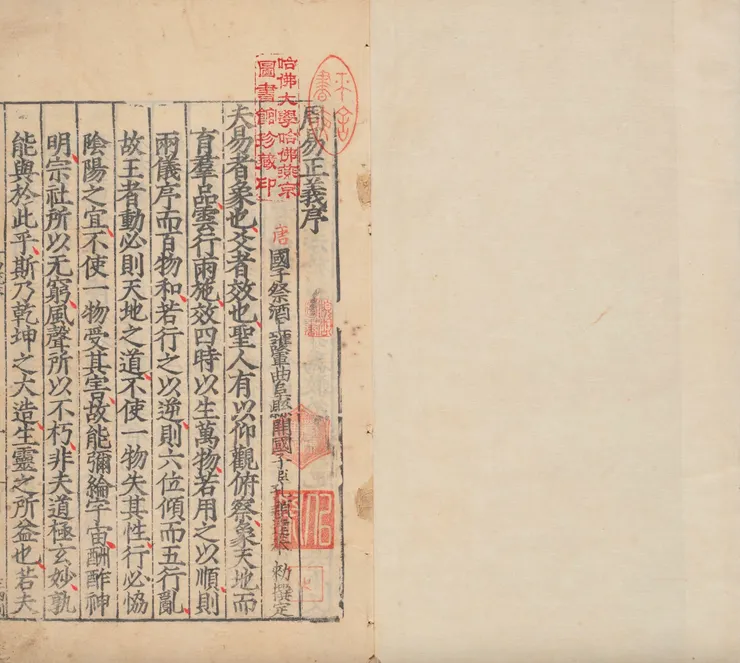 周易正義序
哈佛大學哈佛燕京
圖書館珍藏印
唐 國子祭酒上護軍曲阜縣開國子臣孔穎達奉 勑撰定
夫易者象也爻者效也聖人有以仰觀俯察象天地而
育羣品雲行雨施效四時以生萬物若用之以順則
兩儀序而百物和若行之以逆則六位傾而五行亂
故王者動必則天地之道不使一物失其性行必恊
陰陽之宜不使一物受其害故能彌綸宇宙酬酢神
明宗社所以无窮風聲所以不朽非夫道極玄妙孰
能與於此乎斯乃乾坤之大造生靈之所益也若夫